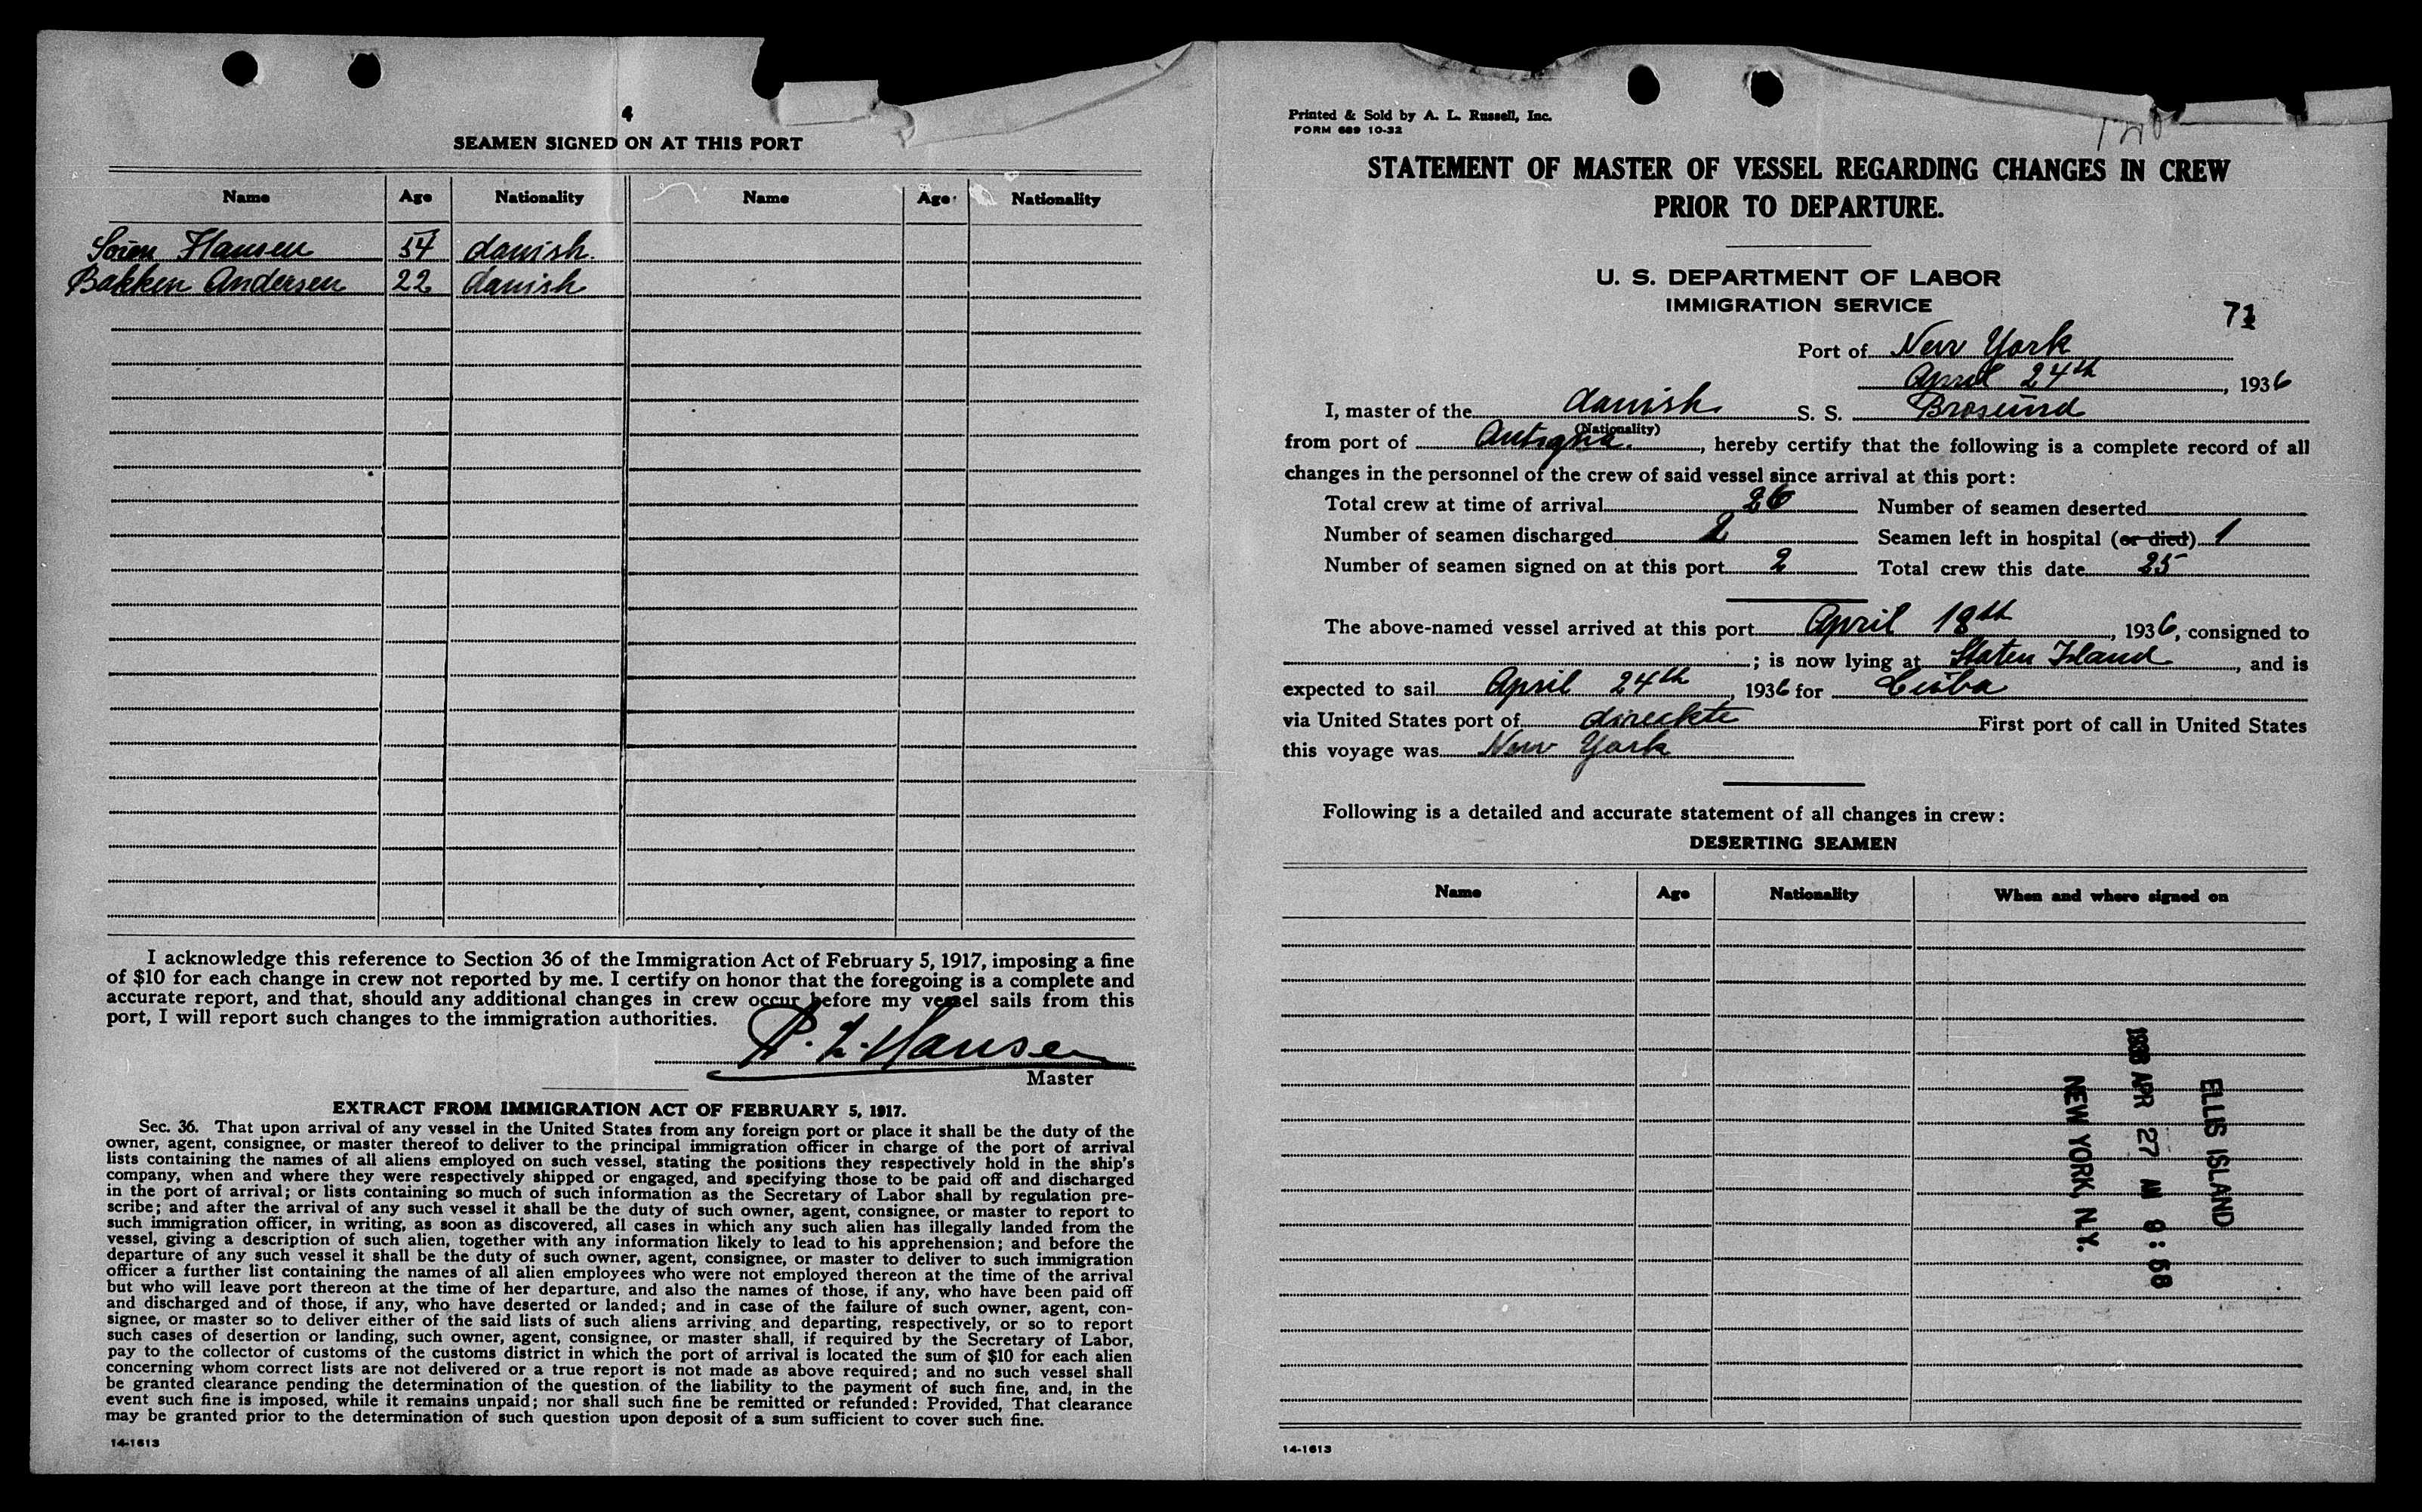 4
SEAMEN SIGNED ON AT THIS PORT
Name Age Nationality Name Age Nationality
Sören Hansen 54 danish.
Bakken Andersen 22 danish
I acknowledge this reference to Section 36 of the Immigration Act of February 5, 1917, imposing a fine
of $10 for each change in crew not reported by me. I certify on honor that the foregoing is a complete and
accurate report, and that, should any additional changes in crew occur before my vessel sails from this
port, I will report such changes to the immigration authorities.
Hansen
Master
EXTRACT FROM IMMIGRATION ACT OF FEBRUARY 5, 1917.
Sec. 36. That upon arrival of any vessel in the United States from any foreign port or place it shall be the duty of the
owner, agent, consignee, or master thereof to deliver to the principal immigration officer in charge of the port of arrival
lists containing the names of all aliens employed on such vessel, stating the positions they respectively hold in the ship's
company, when and where they were respectively shipped or engaged, and specifying those to be paid off and discharged
in the port of arrival; or lists containing so much of such information as the Secretary of Labor shall by regulation pre-
scribe; and after the arrival of any such vessel it shall be the duty of such owner, agent, consignee, or master to report to
such immigration officer, in writing, as soon as discovered, all cases in which any such alien has illegally landed from the
vessel, giving a description of such alien, together with any information likely to lead to his apprehension; and before the
departure of any such vessel it shall be the duty of such owner, agent, consignee, or master to deliver to such immigration
officer a further list containing the names of all alien employees who were not employed thereon at the time of the arrival
but who will leave port thereon at the time of her departure, and also the names of those, if any, who have been paid off
and discharged and of those, if any, who have deserted or landed; and in case of the failure of such owner, agent, con-
signee, or master so to deliver either of the said lists of such aliens arriving and departing, respectively, or so to report
such cases of desertion or landing, such owner, agent, consignee, or master shall, if required by the Secretary of Labor,
pay to the collector of customs of the customs district in which the port of arrival is located the sum of $10 for each alien
concerning whom correct lists are not delivered or a true report is not made as above required; and no such vessel shall
be granted clearance pending the determination of the question of the liability to the payment of such fine, and, in the
event such fine is imposed, while it remains unpaid; nor shall such fine be remitted or refunded: Provided, That clearance
may be granted prior to the determination of such question upon deposit of a sum sufficient to cover such fine.
14-1613
Printed & Sold by A. L. Russell, Inc.
FORM 689 10-32
STATEMENT OF MASTER OF VESSEL REGARDING CHANGES IN CREW
PRIOR TO DEPARTURE.
U. S. DEPARTMENT OF LABOR
IMMIGRATION SERVICE
Port of New York
April 24th, 1936
I, master of the danish S. S. Brosund
(Nationality)
from port of Antigua., hereby certify that the following is a complete record of all
changes in the personnel of the crew of said vessel since arrival at this port:
Total crew at time of arrival 26 Number of seamen deserted
Number of seamen discharged 2 Seamen left in hospital (or died) 1
Number of seamen signed on at this port 2 Total crew this date 25
The above-named vessel arrived at this port April 18th, 1936, consigned to
; is now lying at Staten Island, and is
expected to sail April 24th, 1936 for Cuba
via United States port of direckte First port of call in United States
this voyage was New York
Following is a detailed and accurate statement of all changes in crew:
DESERTING SEAMEN
Name Age Nationality When and where signed on
ELLIS ISLAND
1936 APR 27 AM 9:58
NEW YORK, N.Y.
14-1613